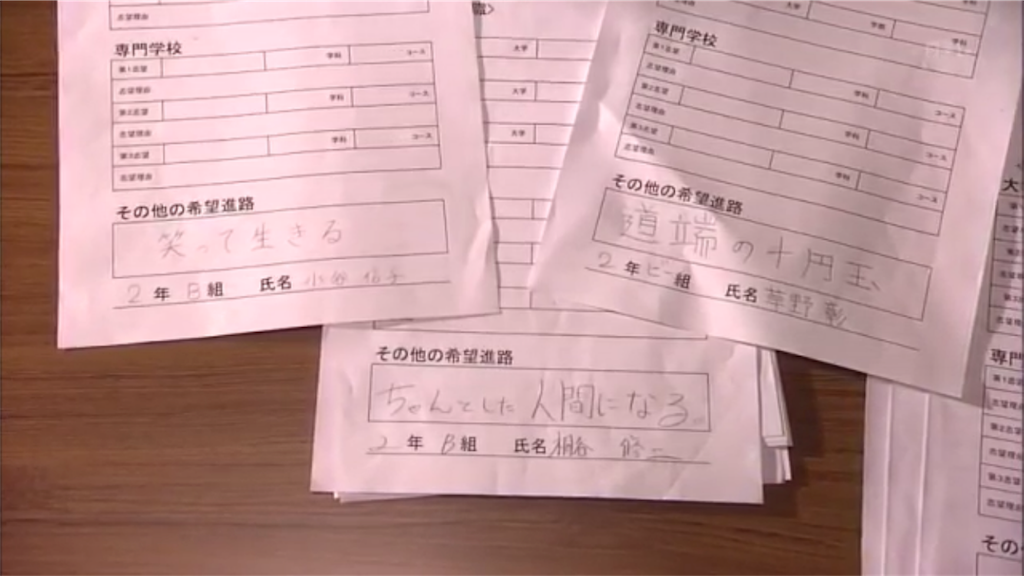 志望理由
専門学校
第1志望 学科 コース
志望理由
第2志望 学科 コース
志望理由
第3志望 学科 コース
志望理由
その他の希望進路
笑って生きる
2 年 B 組 氏名 小谷 信子
大学
大学
大学
学科
学科
専門学校
第1志望 学科 コース
志望理由
第2志望 学科 コース
志望理由
第3志望 学科 コース
志望理由
その他の希望進路
道端の十円玉、
2 年 ビー 組 氏名 草野 彰
その他の希望進路
ちゃんとした人間になる。
2 年 B 組 氏名 桐谷 修二
大
専門
第1志望
志望理由
第2志望
志望理由
第3志望
志望理由
その